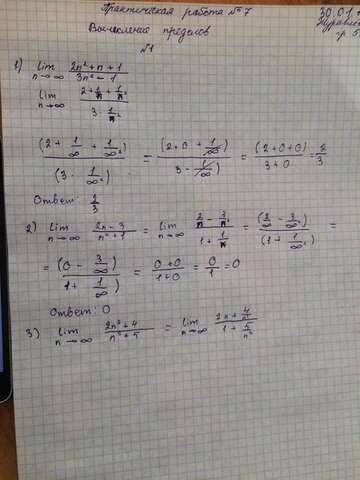 Практическая работа № 7
30.01
Вычисление пределов
гр 5
№1
1) lim n→∞ (2n²+n+1)/(3n²-1)
lim n→∞ (2+1/n+1/n²)/(3-1/n²)
(2+1/∞+1/∞²)/(3-1/∞²) = (2+0+1/∞)/(3-1/∞) = (2+0+0)/(3+0) = 2/3
Ответ: 2/3
2) lim n→∞ (2x-3)/(n²+1) = lim n→∞ (2/n-3/n²)/(1+1/n²) = (2/∞-3/∞²)/(1+1/∞²) =
= (0-3/∞)/(1+1/∞) = (0+0)/(1+0) = 0/1 = 0
Ответ: 0
3) lim n→∞ (2n³+4)/(n²+5) = lim n→∞ (2x+4/n²)/(1+5/n²)